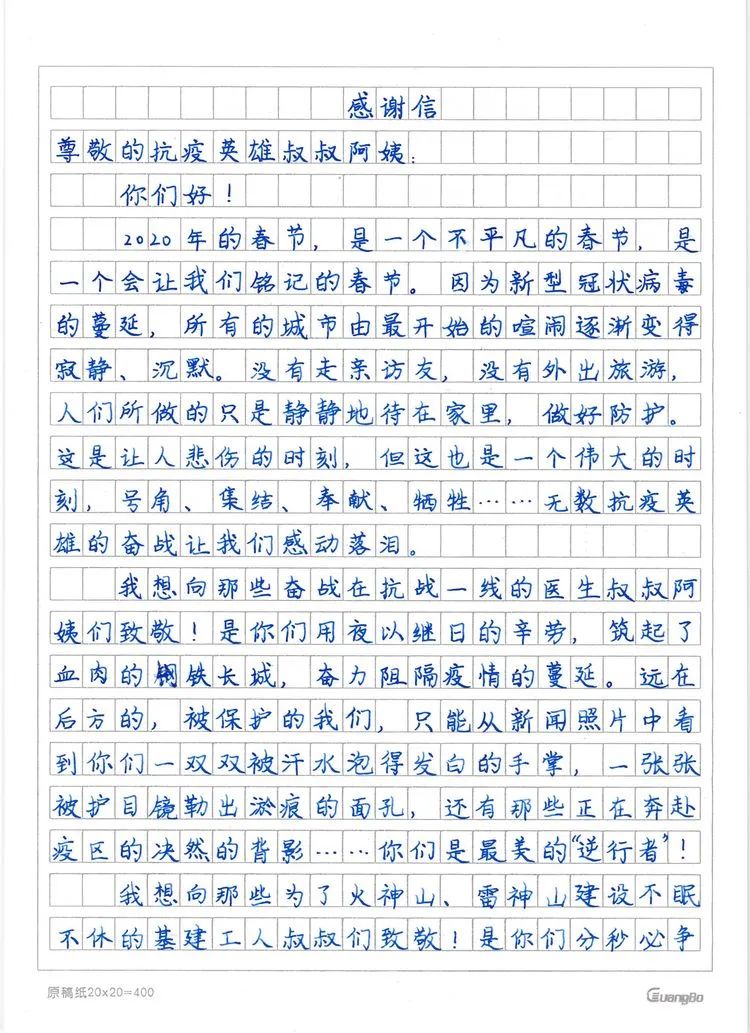 感谢信
尊敬的抗疫英雄叔叔阿姨：
你们好！
2020年的春节，是一个不平凡的春节，是
一个会让我们铭记的春节。因为新型冠状病毒
的蔓延，所有的城市由最开始的喧闹逐渐变得
寂静、沉默。没有走亲访友，没有外出旅游，
人们所做的只是静静地待在家里，做好防护。
这是让人悲伤的时刻，但这也是一个伟大的时
刻，号角、集结、奉献、牺牲……无数抗疫英
雄的奋战让我们感动落泪。
我想向那些奋战在抗战一线的医生叔叔阿
姨们致敬！是你们用夜以继日的辛劳，筑起了
血肉的钢铁长城，奋力阻隔疫情的蔓延。远在
后方的，被保护的我们，只能从新闻照片中看
到你们一双双被汗水泡得发白的手掌，一张张
被护目镜勒出淤痕的面孔，还有那些正在奔赴
疫区的决然的背影……你们是最美的“逆行者”！
我想向那些为了火神山、雷神山建设不眠
不休的基建工人叔叔们致敬！是你们分秒必争
原稿纸20x20=400
GuangBo